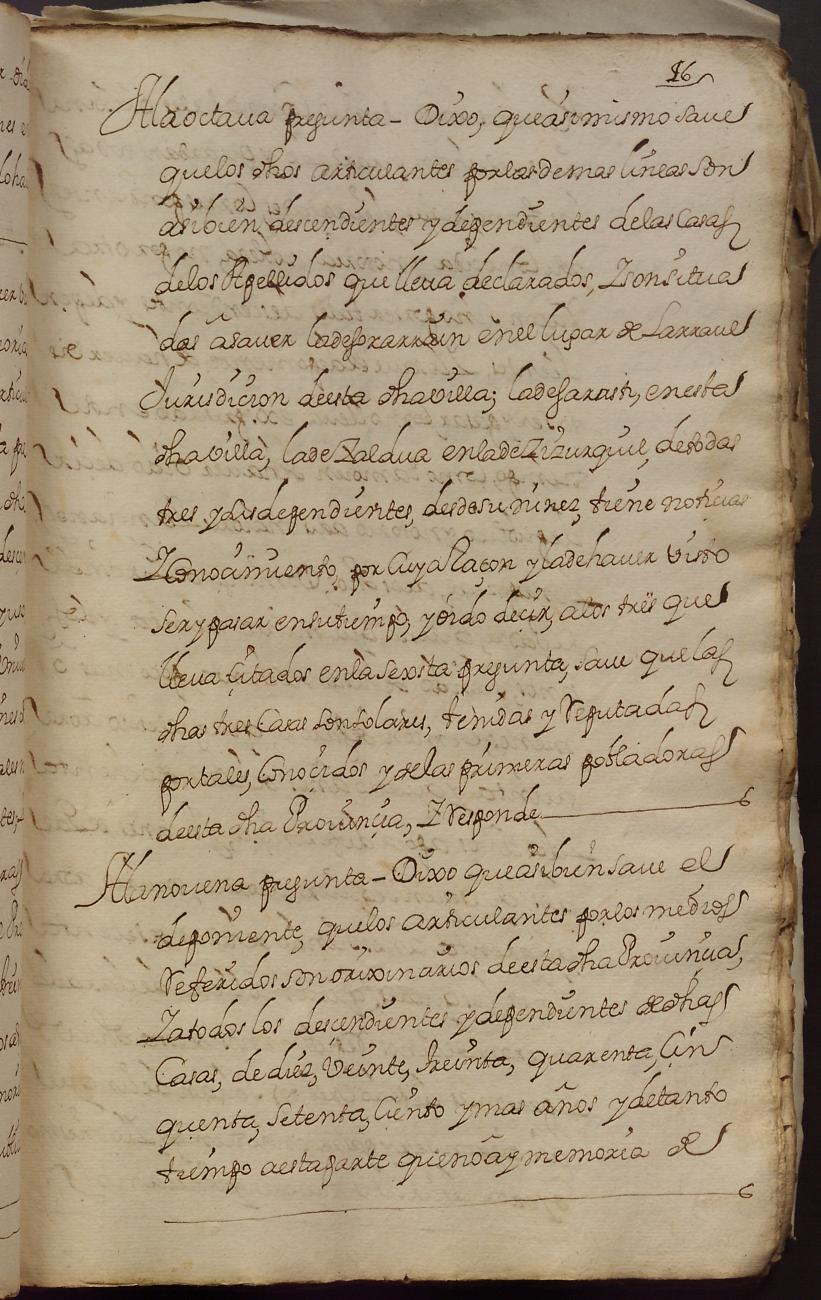 16
A la octaua pregunta - Dixo, que asimismo saue
que los dhos articulantes por las demas lineas son
asibien descendientes y dependientes de las Casas
de los Apellidos que lleua declarados, Y son situa
das â sauer la de en el lugar de Larraul
Jurisdicion de esta dha villa; la de en esta
dha villa, la de Zaldua en la de Zizurquil, de todas
tres y sus dependientes, desde su niñez, tiene noticias
Y Conocimiento, por Cuya Raçon y la de hauer Visto
ser y pasar en su tiempo, y oido decir, a los tres que
lleua Çitados en la sexsta pregunta, saue que las
dhas tres Casas son solares, tenidas y Reputadas
por tales, Conocidos y de las primeras pobladoras
de esta dha Prouinçia, Y Responde
A la nouena pregunta - Dixo que asibien saue el
deponiente, que los articulantes por los medios
Referidos son orixinarios de esta dha Prouinçia,
Y a todos los descendientes y dependientes de dhas
Casas, de diez, Veinte, treinta, quarenta, Çin
quenta, setenta, Ciento y mas años y de tanto
tiempo a esta parte que no ây memoria de